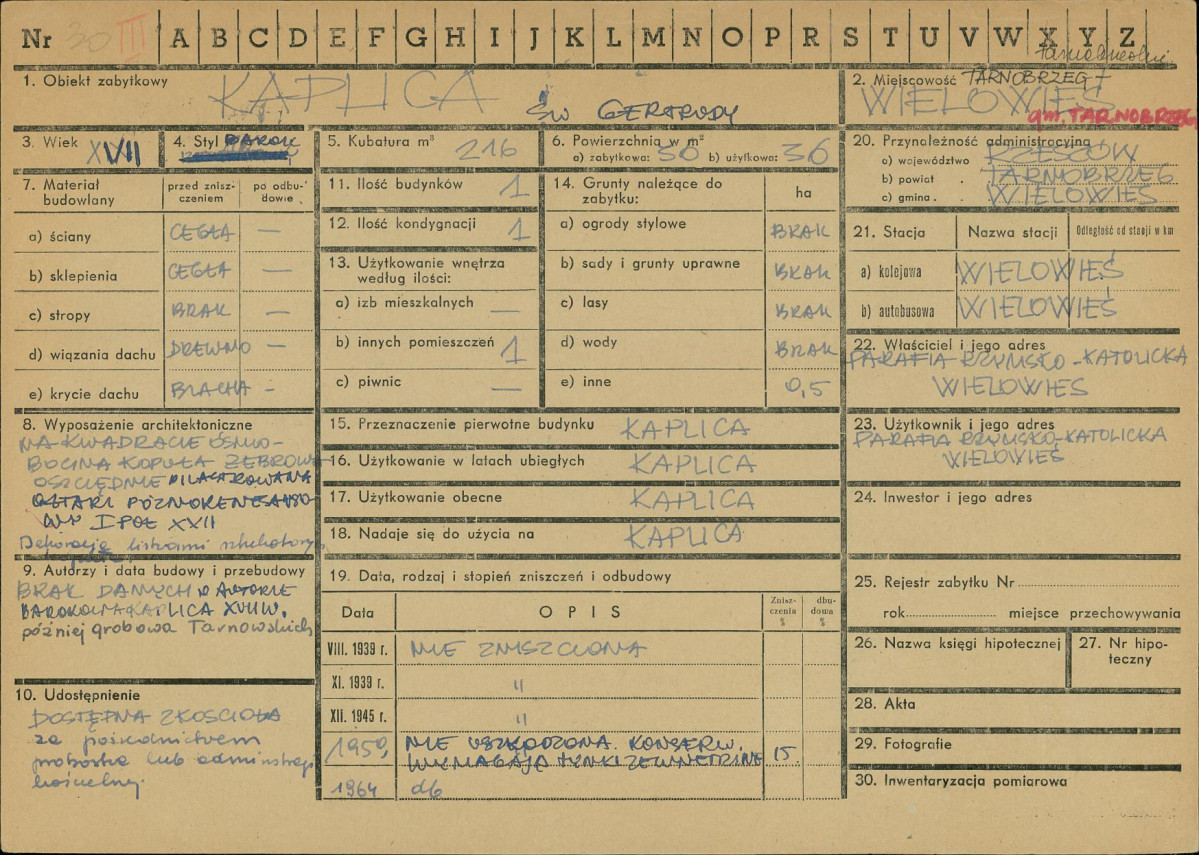 Nr 30 III A B C D E F G H I J K L M N O P R S T U V W X Y Z
1. Obiekt zabytkowy
KAPLICA
ŚW GERTRUDY
2. Miejscowość TARNOBRZEG
WIELOWIEŚ
gm. TARNOBRZEG
3. Wiek XVII
4. Styl BAROK
5. Kubatura m³ 216
6. Powierzchnia w m²
a) zabytkowa: 36 b) użytkowa: 36
7. Materiał budowlany
przed znisz-
czeniem
po odbu-
dowie
a) ściany CEGŁA —
b) sklepienia CEGŁA —
c) stropy BRAK —
d) wiązania dachu DREWNO —
e) krycie dachu BLACHA —
8. Wyposażenie architektoniczne
NA KWADRACIE OŚMIO-
BOCZNA KOPUŁA ŻEBROW
OSZCZĘDNIE PILASTROWANA
OŁTARZ PÓŹNORENESANSO
WY I POŁ XVII
Dekoracja listwami
9. Autorzy i data budowy i przebudowy
BRAK DANYCH O AUTORIE
BAROKOWA KAPLICA XVII W.
później grobowa Tarnowskich
10. Udostępnienie
DOSTĘPNA Z KOŚCIOŁA
za pośrednictwem
proboszcza lub administracji
kościelnej.
11. Ilość budynków 1
12. Ilość kondygnacji 1
13. Użytkowanie wnętrza
według ilości:
a) izb mieszkalnych —
b) innych pomieszczeń 1
c) piwnic —
14. Grunty należące do
zabytku:
ha
a) ogrody stylowe BRAK
b) sady i grunty uprawne BRAK
c) lasy BRAK
d) wody BRAK
e) inne 0,5
15. Przeznaczenie pierwotne budynku KAPLICA
16. Użytkowanie w latach ubiegłych KAPLICA
17. Użytkowanie obecne KAPLICA
18. Nadaje się do użycia na KAPLICA
19. Data, rodzaj i stopień zniszczeń i odbudowy
Data OPIS Znisz-
czenia
% dbu-
dowia
%
VIII. 1939 r. NIE ZNISZCZONA
XI. 1939 r. "
XII. 1945 r. "
1959, NIE USZKODZONA. KONSERW.
WYMAGAJĄ TYNKI ZEWNĘTRZNE 15.
1964 db
20. Przynależność administracyjna
a) województwo RZESZÓW
b) powiat . TARNOBRZEG
c) gmina . WIELOWIEŚ
21. Stacja Nazwa stacji Odległość od stacji w km
a) kolejowa WIELOWIEŚ
b) autobusowa WIELOWIEŚ
22. Właściciel i jego adres
PARAFIA RZYMSKO-KATOLICKA
WIELOWIEŚ
23. Użytkownik i jego adres
PARAFIA RZYMSKO-KATOLICKA
WIELOWIEŚ
24. Inwestor i jego adres
25. Rejestr zabytku Nr
rok miejsce przechowywania
26. Nazwa księgi hipotecznej
27. Nr hipo-
teczny
28. Akta
29. Fotografie
30. Inwentaryzacja pomiarowa